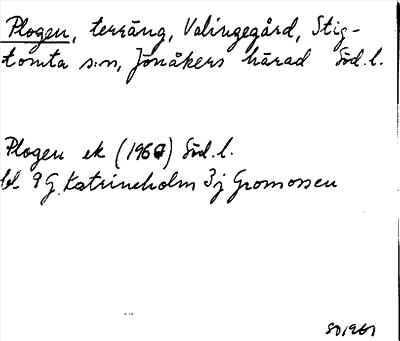 Plogen, terräng, Valingegård, Stig-
tomta s:n, Jönåkers härad Söd.l.
Plogen ek (1967) Söd.l.
bl. 9G Katrineholm 3j Gromossen
SO 1967